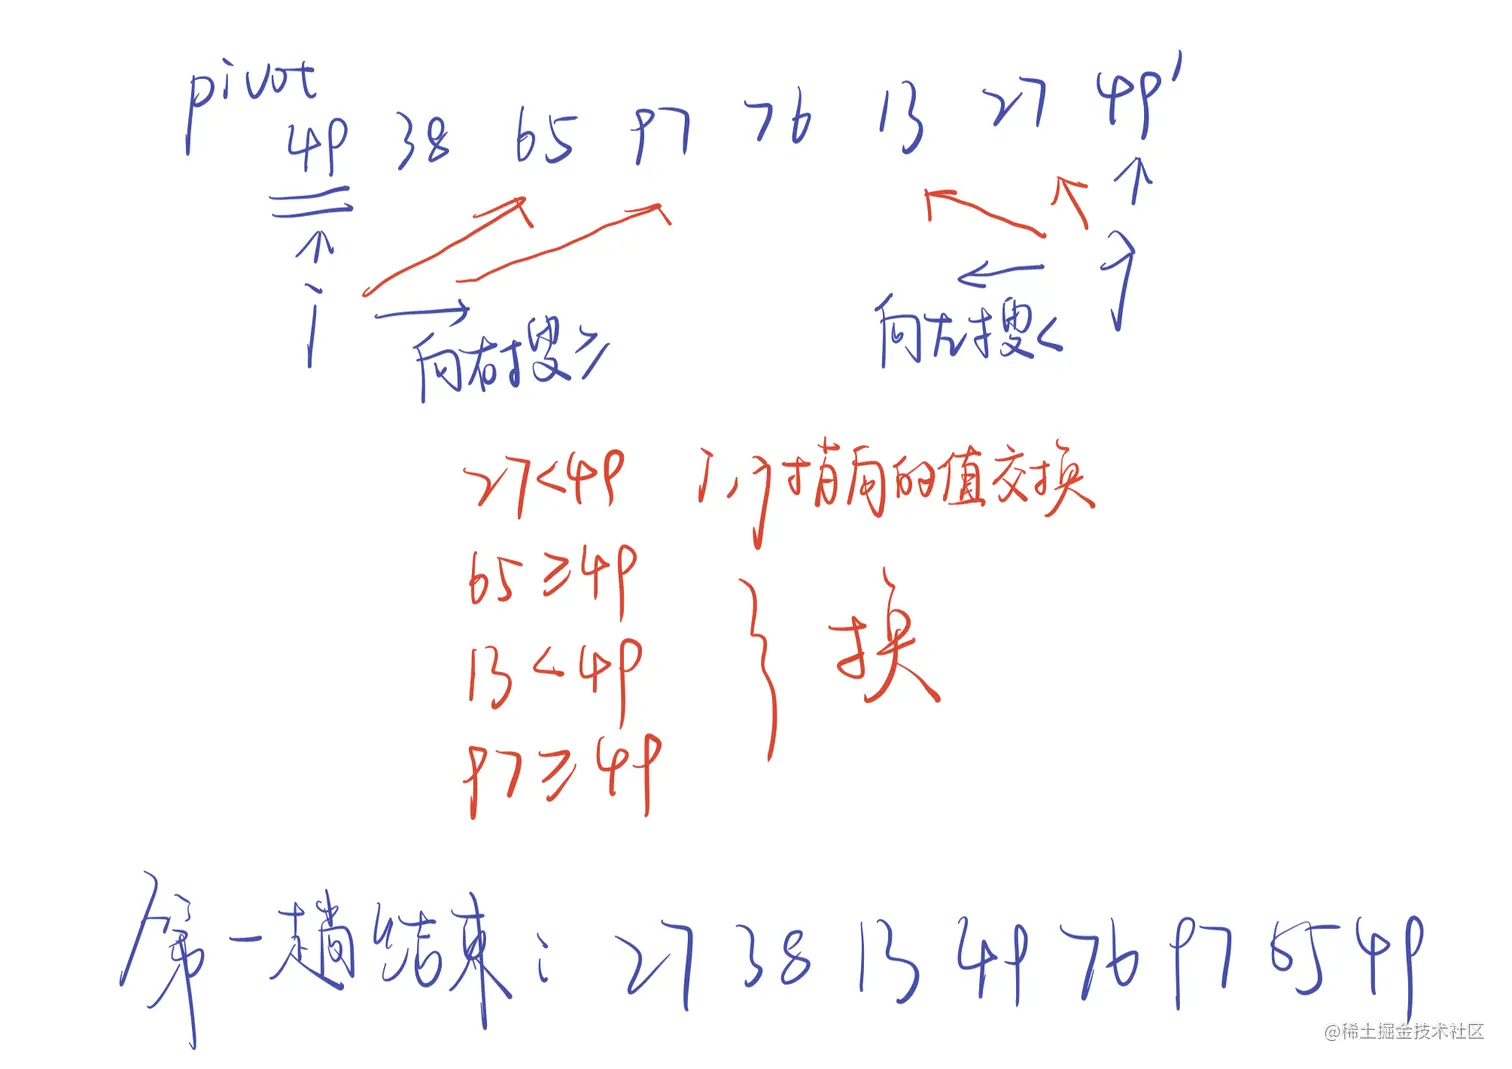 pivot
49 38 65 97 76 13 27 49'
i j
向右搜≥ 向左搜<
27<49 i,j指向的值交换
65≥49
13<49 换
97≥49
第一趟结束: 27 38 13 49 76 97 65 49
@稀土掘金技术社区